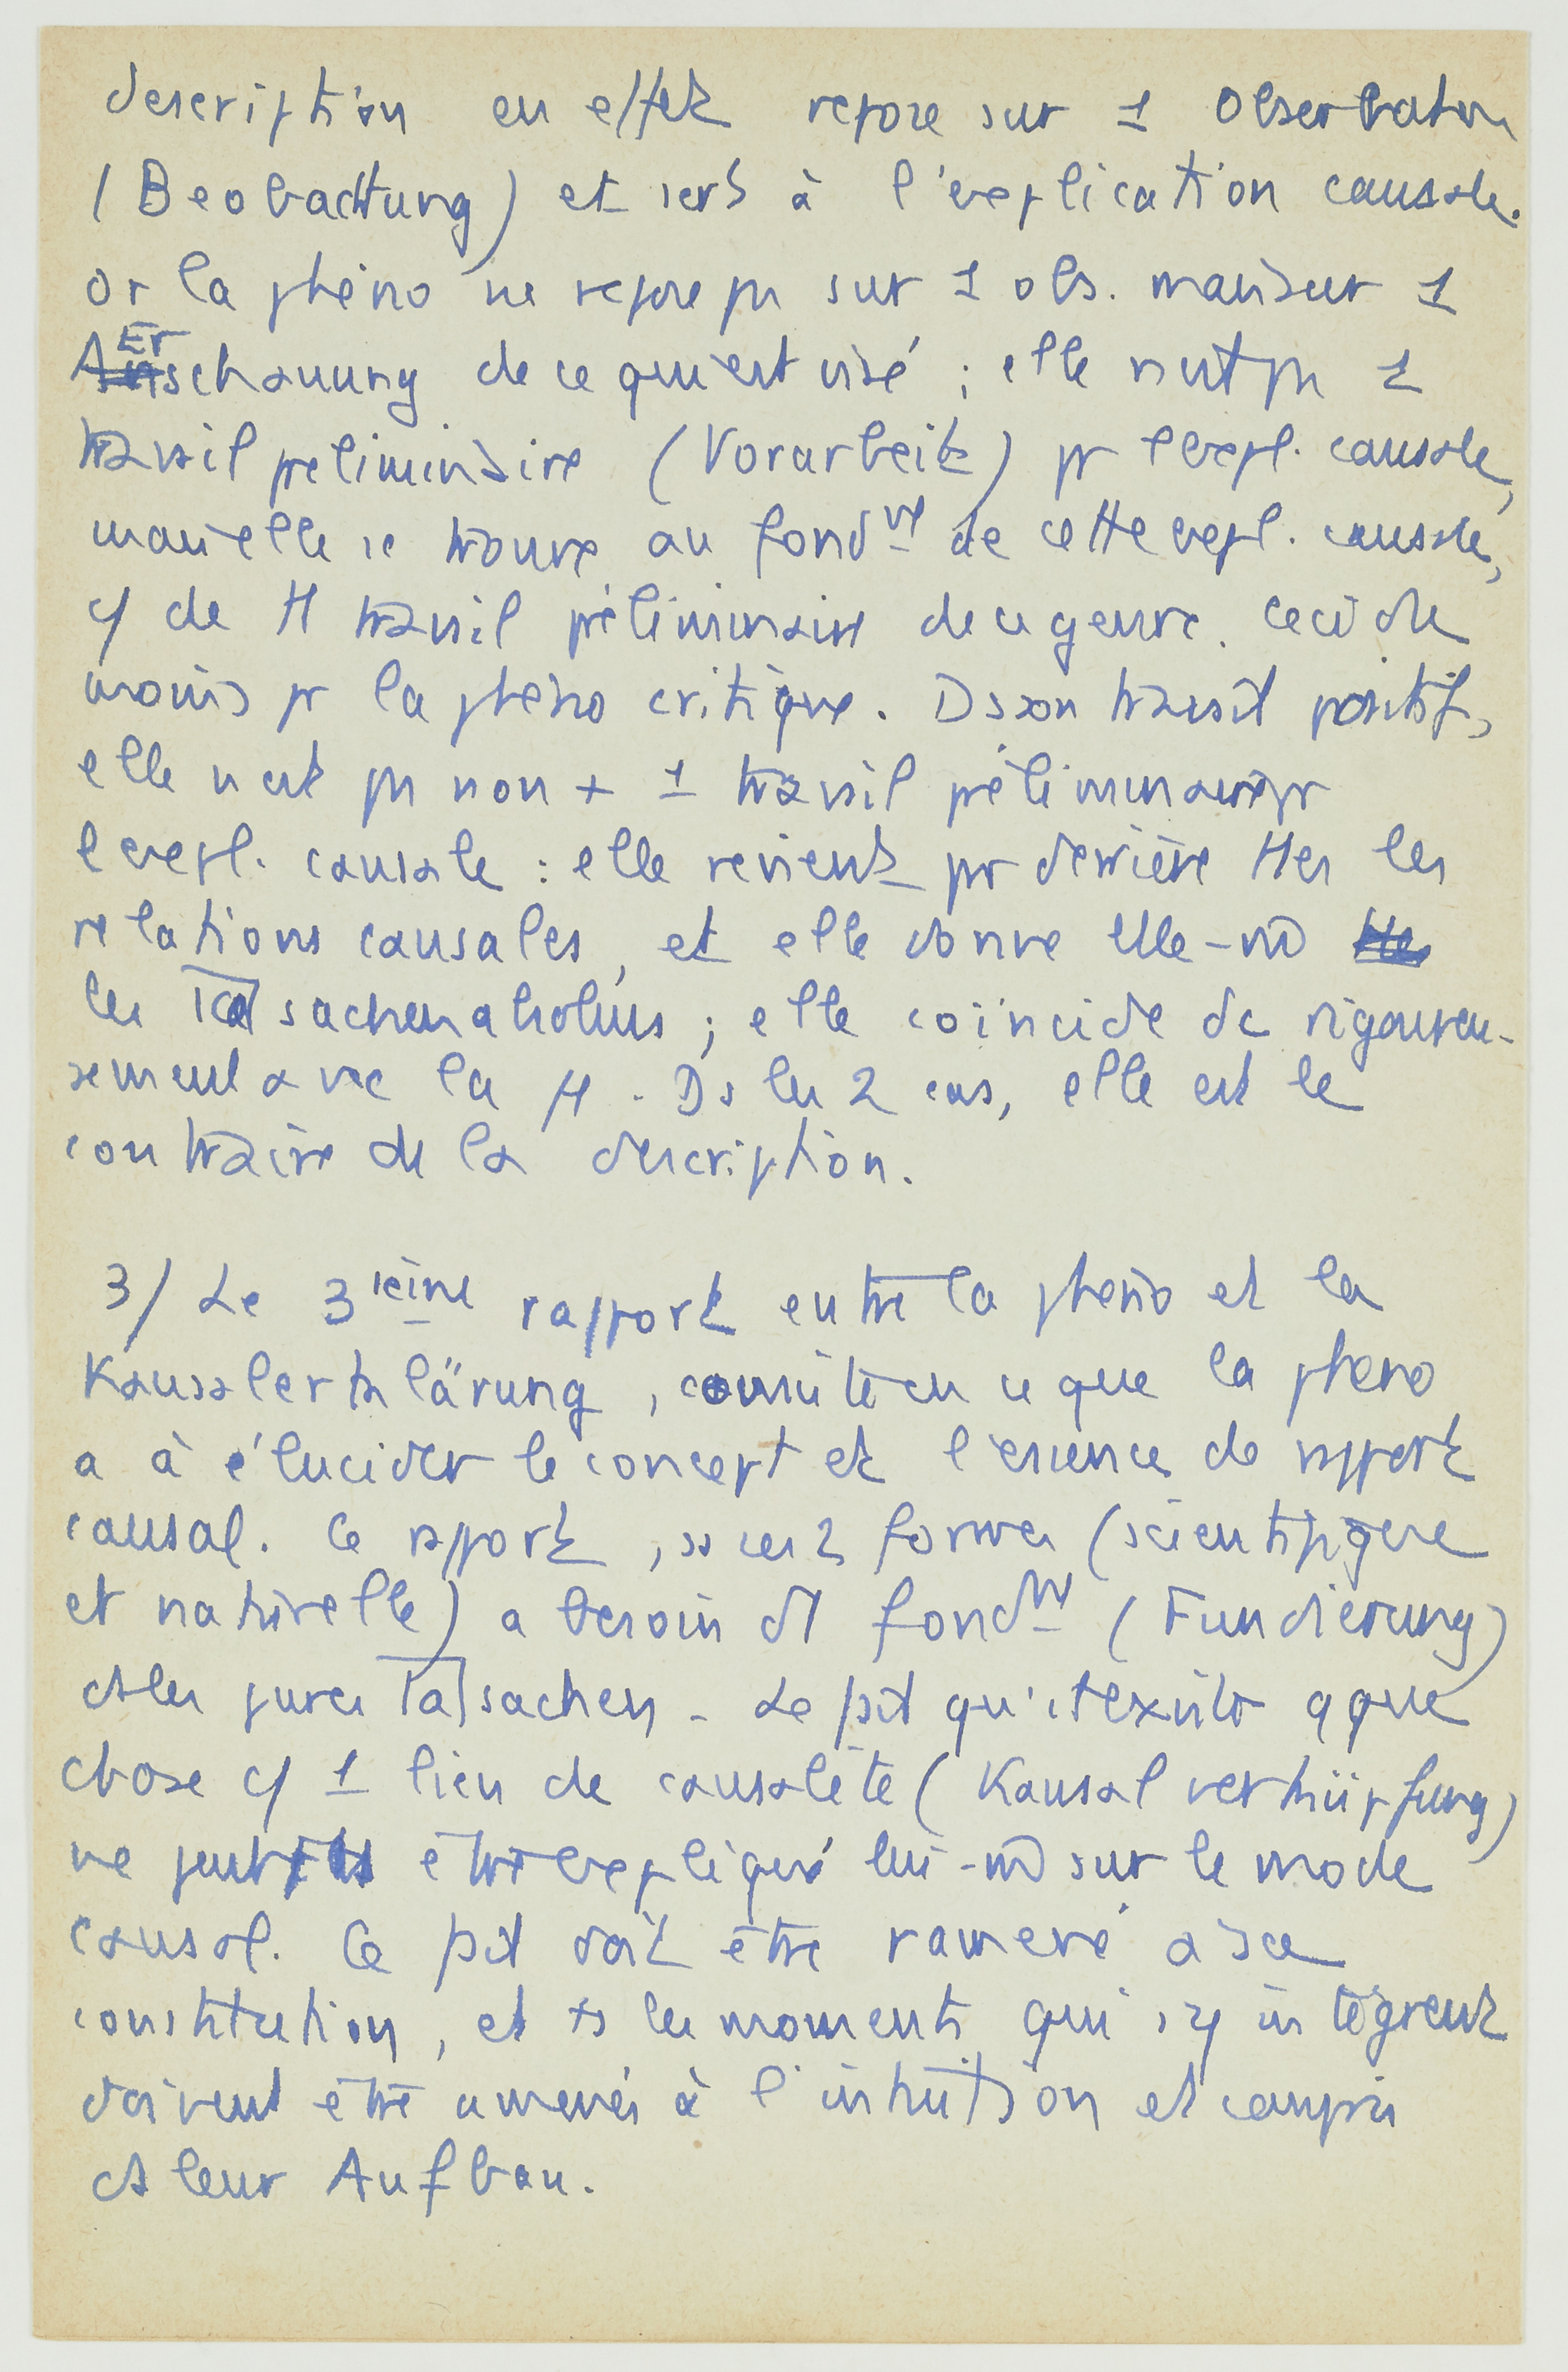 description en effet repose sur 1 observation
(Beobachtung) et sert à l'explication causale.
or la phéno ne repose pas sur 1 obs. mais sur 1
Erschauung de ce qui est visé ; elle n'est pas 1
travail préliminaire (Vorarbeit) pr l'expl. causale,
mais elle se trouve au fondmt de cette expl. causale,
cô de tt travail préliminaire de ce genre. Ceci du
moins pr la phéno critique. Ds son travail positif,
elle n'est pas non + 1 travail préliminaire pr
l'expl. causale : elle revient par derrière ttes les
relations causales, et elle donne elle-m̂
les Tatsachen absolus ; elle coïncide dc rigoureu-
sement avec la φ. Ds les 2 cas, elle est le
contraire de la description.
3/ Le 3ieme rapport entre la phéno et la
Kausalerklärung, consiste en ce que la phéno
a à élucider le concept et l'essence de rapport
causal. Ce rapport, ss ces 2 formes (scientifique
et naturelle) a besoin d'1 fondmt (Fundierung)
ds les pures Tatsachen. Le fait qu'il existe qque
chose cô 1 lien de causalité (Kausalverknüpfung)
ne peut pas être expliqué lui-m̂ sur le mode
causal. Ce fait doit être ramené à sa
constitution, et ts les moments qui s'y intègrent
doivent être amenés à l'intuition et compris
ds leur Aufbau.